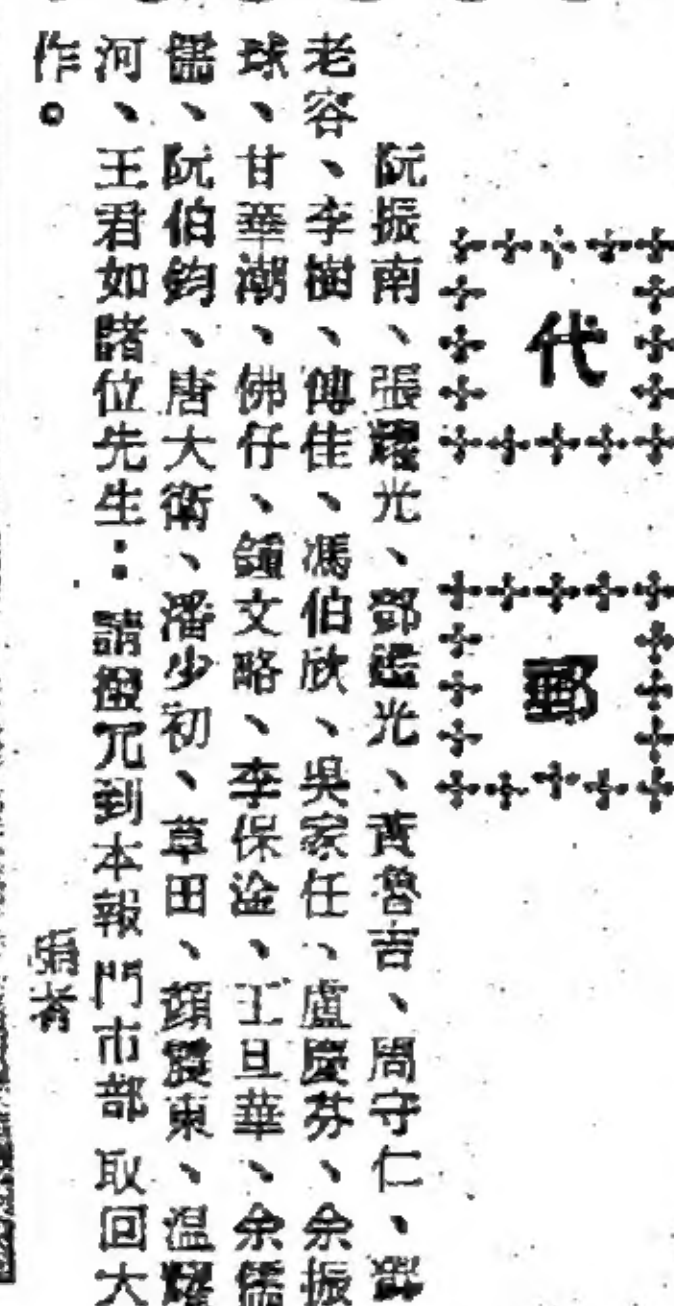 代郵
阮振南、張耀光、鄧光、黃魯吉、周守仁、鄧
老容、李樹、傅佳、馮伯欣、吳家任、盧慶芬、余振
球、甘華潮、佛仔、鍾文略、李保淦、王旦華、余儒
儒、阮伯鈞、唐大衛、潘少初、草田、顏震東、温耀
河、王君如諸位先生：請撥冗到本報門市部取回大
作。
編者